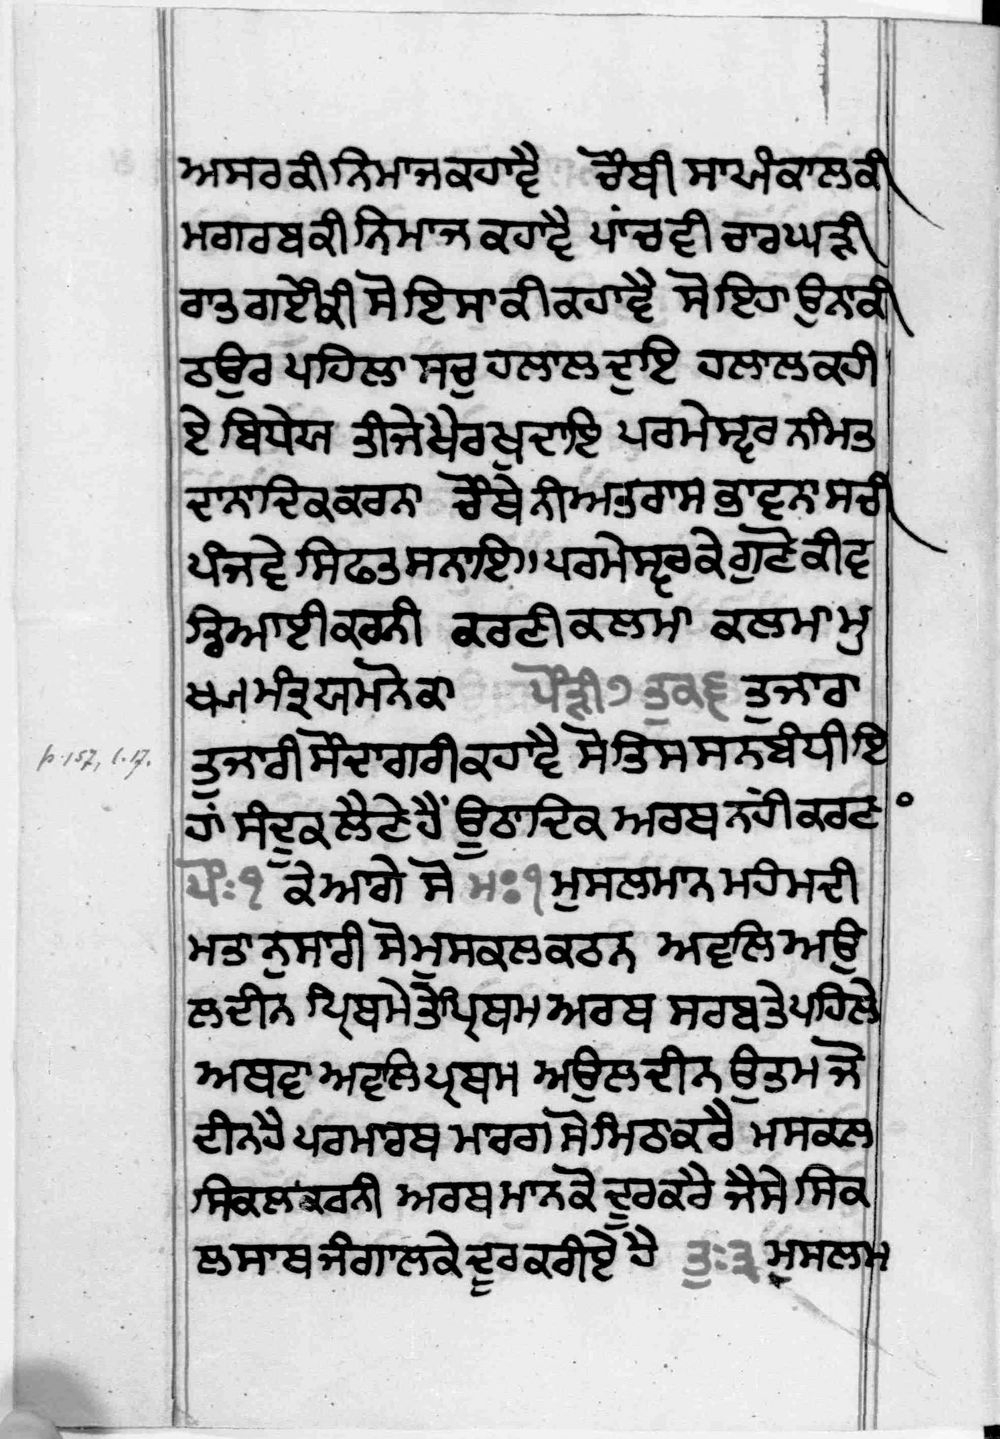 ਅਸਰ ਕੀ ਨਿਮਾਜ ਕਹਾਵੈ ਚੌਥੀ ਸਾਅੰਕਾਲ ਕੀ
ਮਗਰਬ ਕੀ ਨਿਮਾਜ ਕਹਾਵੈ ਪਾਂਚਵੀ ਚਾਰ ਘੜੀ
ਰਾਤ ਗਏ ਕੀ ਸੋ ਇਸਾ ਕੀ ਕਹਾਵੈ ਸੋ ਇਹਾ ਉਨਾ ਕੀ
ਠਉਰ ਪਹਿਲਾ ਸਚੁ ਹਲਾਲ ਦੁਇ ਹਲਾਲ ਕਹੀ
ਏ ਬਿਧੇਯ ਤੀਜੇ ਖੈਰ ਖੁਦਾਇ ਪਰਮੇਸ੍ਵਰ ਨਮਿਤ
ਦਾਨਾਦਿਕ ਕਰਨਾ ਚੌਥੇ ਨੀਅਤ ਰਾਸ ਭਾਵਨਾ ਸਚੀ
ਪੰਜਵੇ ਸਿਫਤ ਸਨਾਇ॥ ਪਰਮੇਸ੍ਵਰ ਕੇ ਗੁਣੋ ਕੀ ਵ
ਡਿਆਈ ਕਰਨੀ ਕਰਣੀ ਕਲਮਾ ਕਲਮਾ ਮੁ
ਖਜ ਮੰਤ੍ਰ ਯਮਨੋ ਕਾ ਪੌੜੀ ੭ ਤੁਕ ੬ ਤੁਜਾਰਾ
ਤੁਜਾਰੀ ਸੌਦਾਗਰੀ ਕਹਾਵੈ ਸੋ ਤਿਸ ਸਨਬੰਧੀ ਇ
ਹਾਂ ਸੰਦੂਕ ਲੈਣੇ ਹੈਂ ਊਠਾਦਿਕ ਅਰਥ ਨਹੀ ਕਰਣ
ਪੌ: ੧ ਕੇ ਆਗੇ ਸੋ ਮਃ ੧ ਮੁਸਲਮਾਨ ਮਹੰਮਦੀ
ਮਤਾਨੁਸਾਰੀ ਸੋ ਮੁਸਕਲ ਕਠਨ ਅਵਲਿ ਅਉ
ਲ ਦੀਨ ਪ੍ਰਿਥਮੇ ਤੇ ਪ੍ਰਿਥਮ ਅਰਥ ਸਰਬ ਤੇ ਪਹਿਲੇ
ਅਥਵਾ ਅਵਲਿ ਪ੍ਰਥਮ ਅਉਲ ਦੀਨ ਉਤਮ ਜੋ
ਦੀਨ ਹੈ ਪਰਮਾਰਥ ਮਾਰਗ ਸੋ ਮਿਠ ਕਰੈ ਮਸਕਲ
ਸਿਕਲ ਕਰਨੀ ਅਰਥ ਮਾਨ ਕੋ ਦੂਰ ਕਰੈ ਜੈਸੇ ਸਿਕ
ਲ ਸਾਥ ਜੰਗਾਲ ਕੇ ਦੂਰ ਕਰੀਏ ਹੈ ਤੁ: ੩ ਮੁਸਲਮ
p. 157, l. 17.